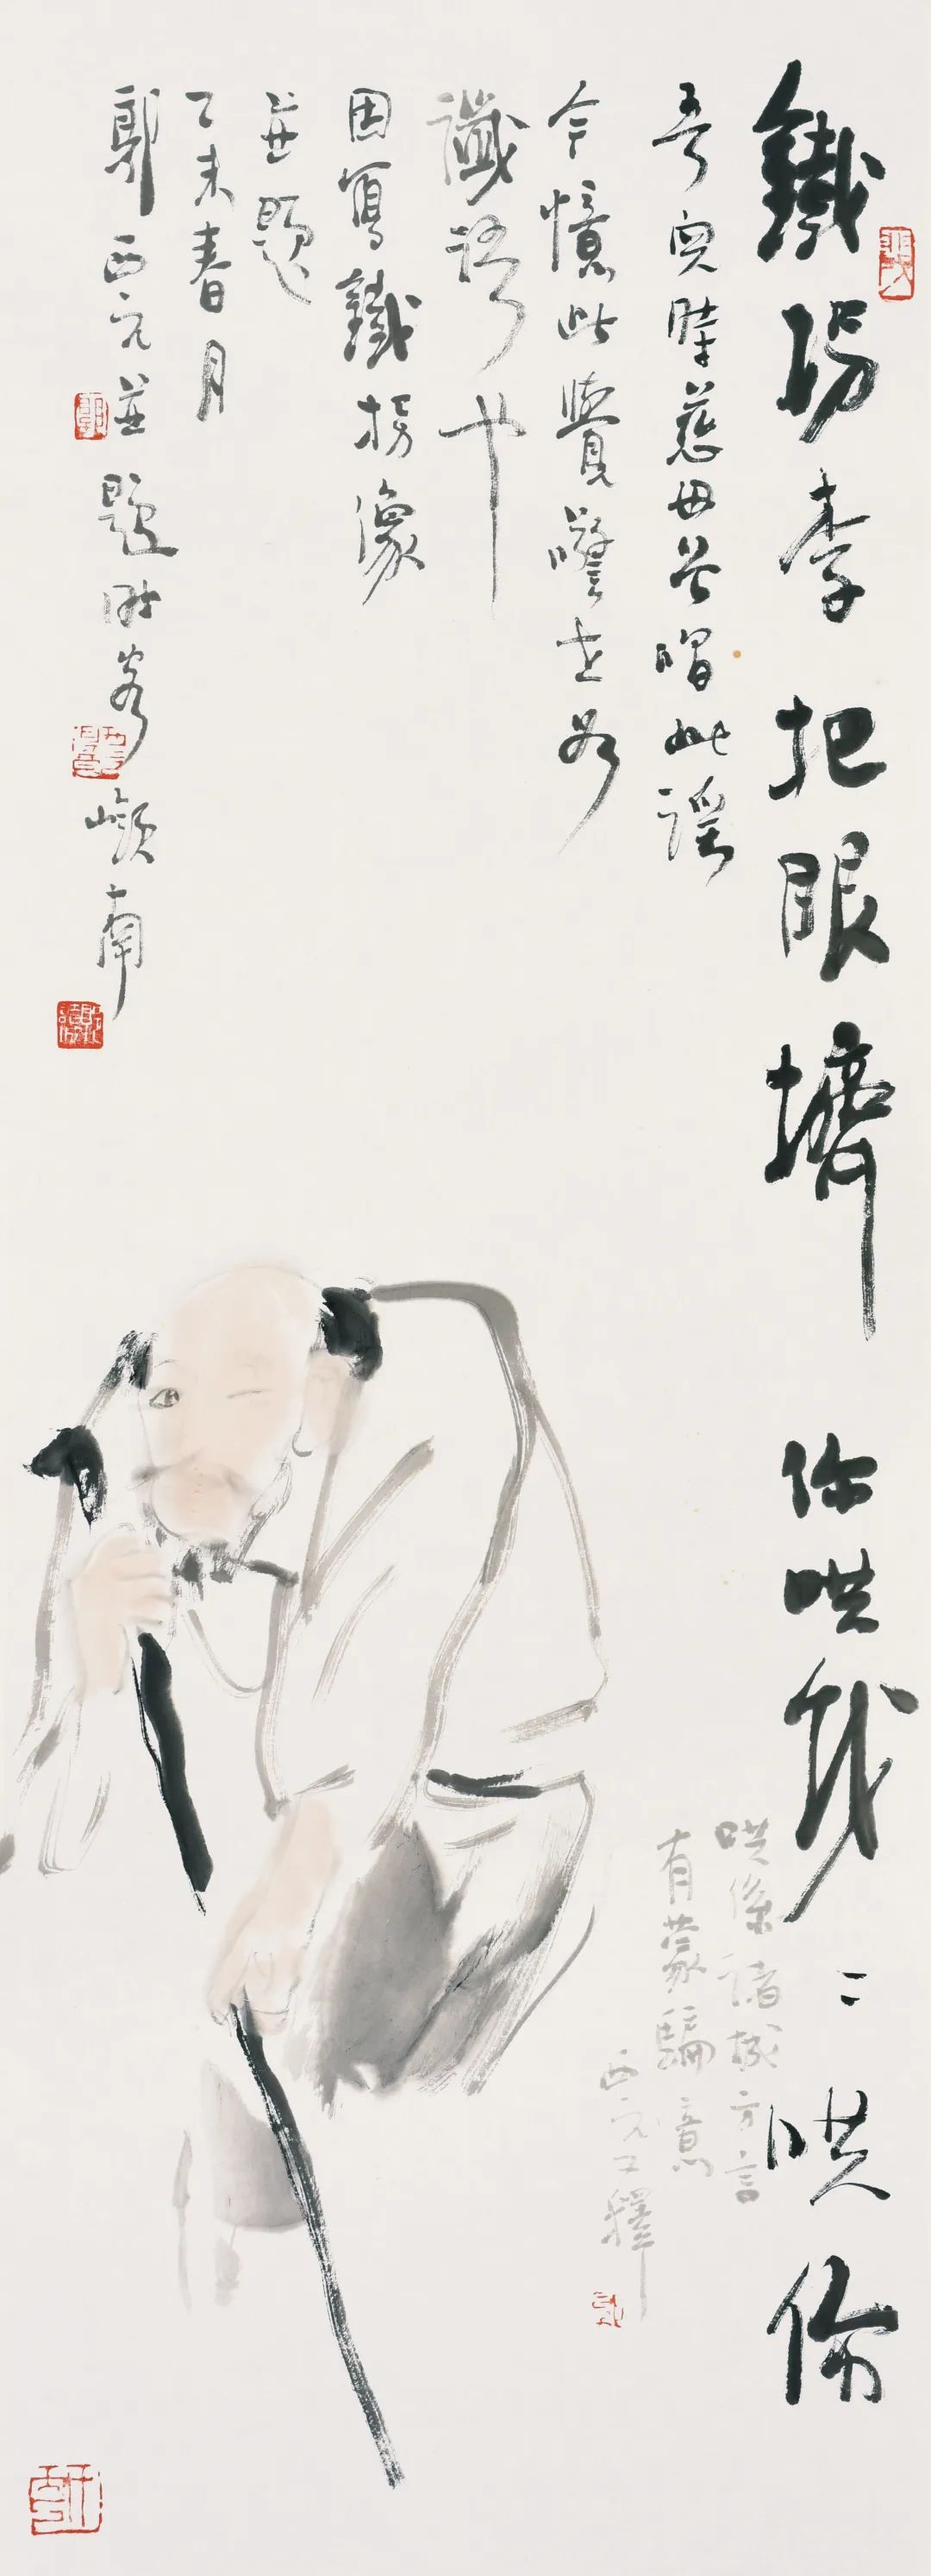 鐵拐李把眼擠你哄我〻哄你
吾兒時慈母唱此謠
今憶此覺警世
讖語也
因寫鐵拐像
並題
乙未春月
郭西元並題時客嶺南
哄係諸城方言
有蒙騙意
西元又釋